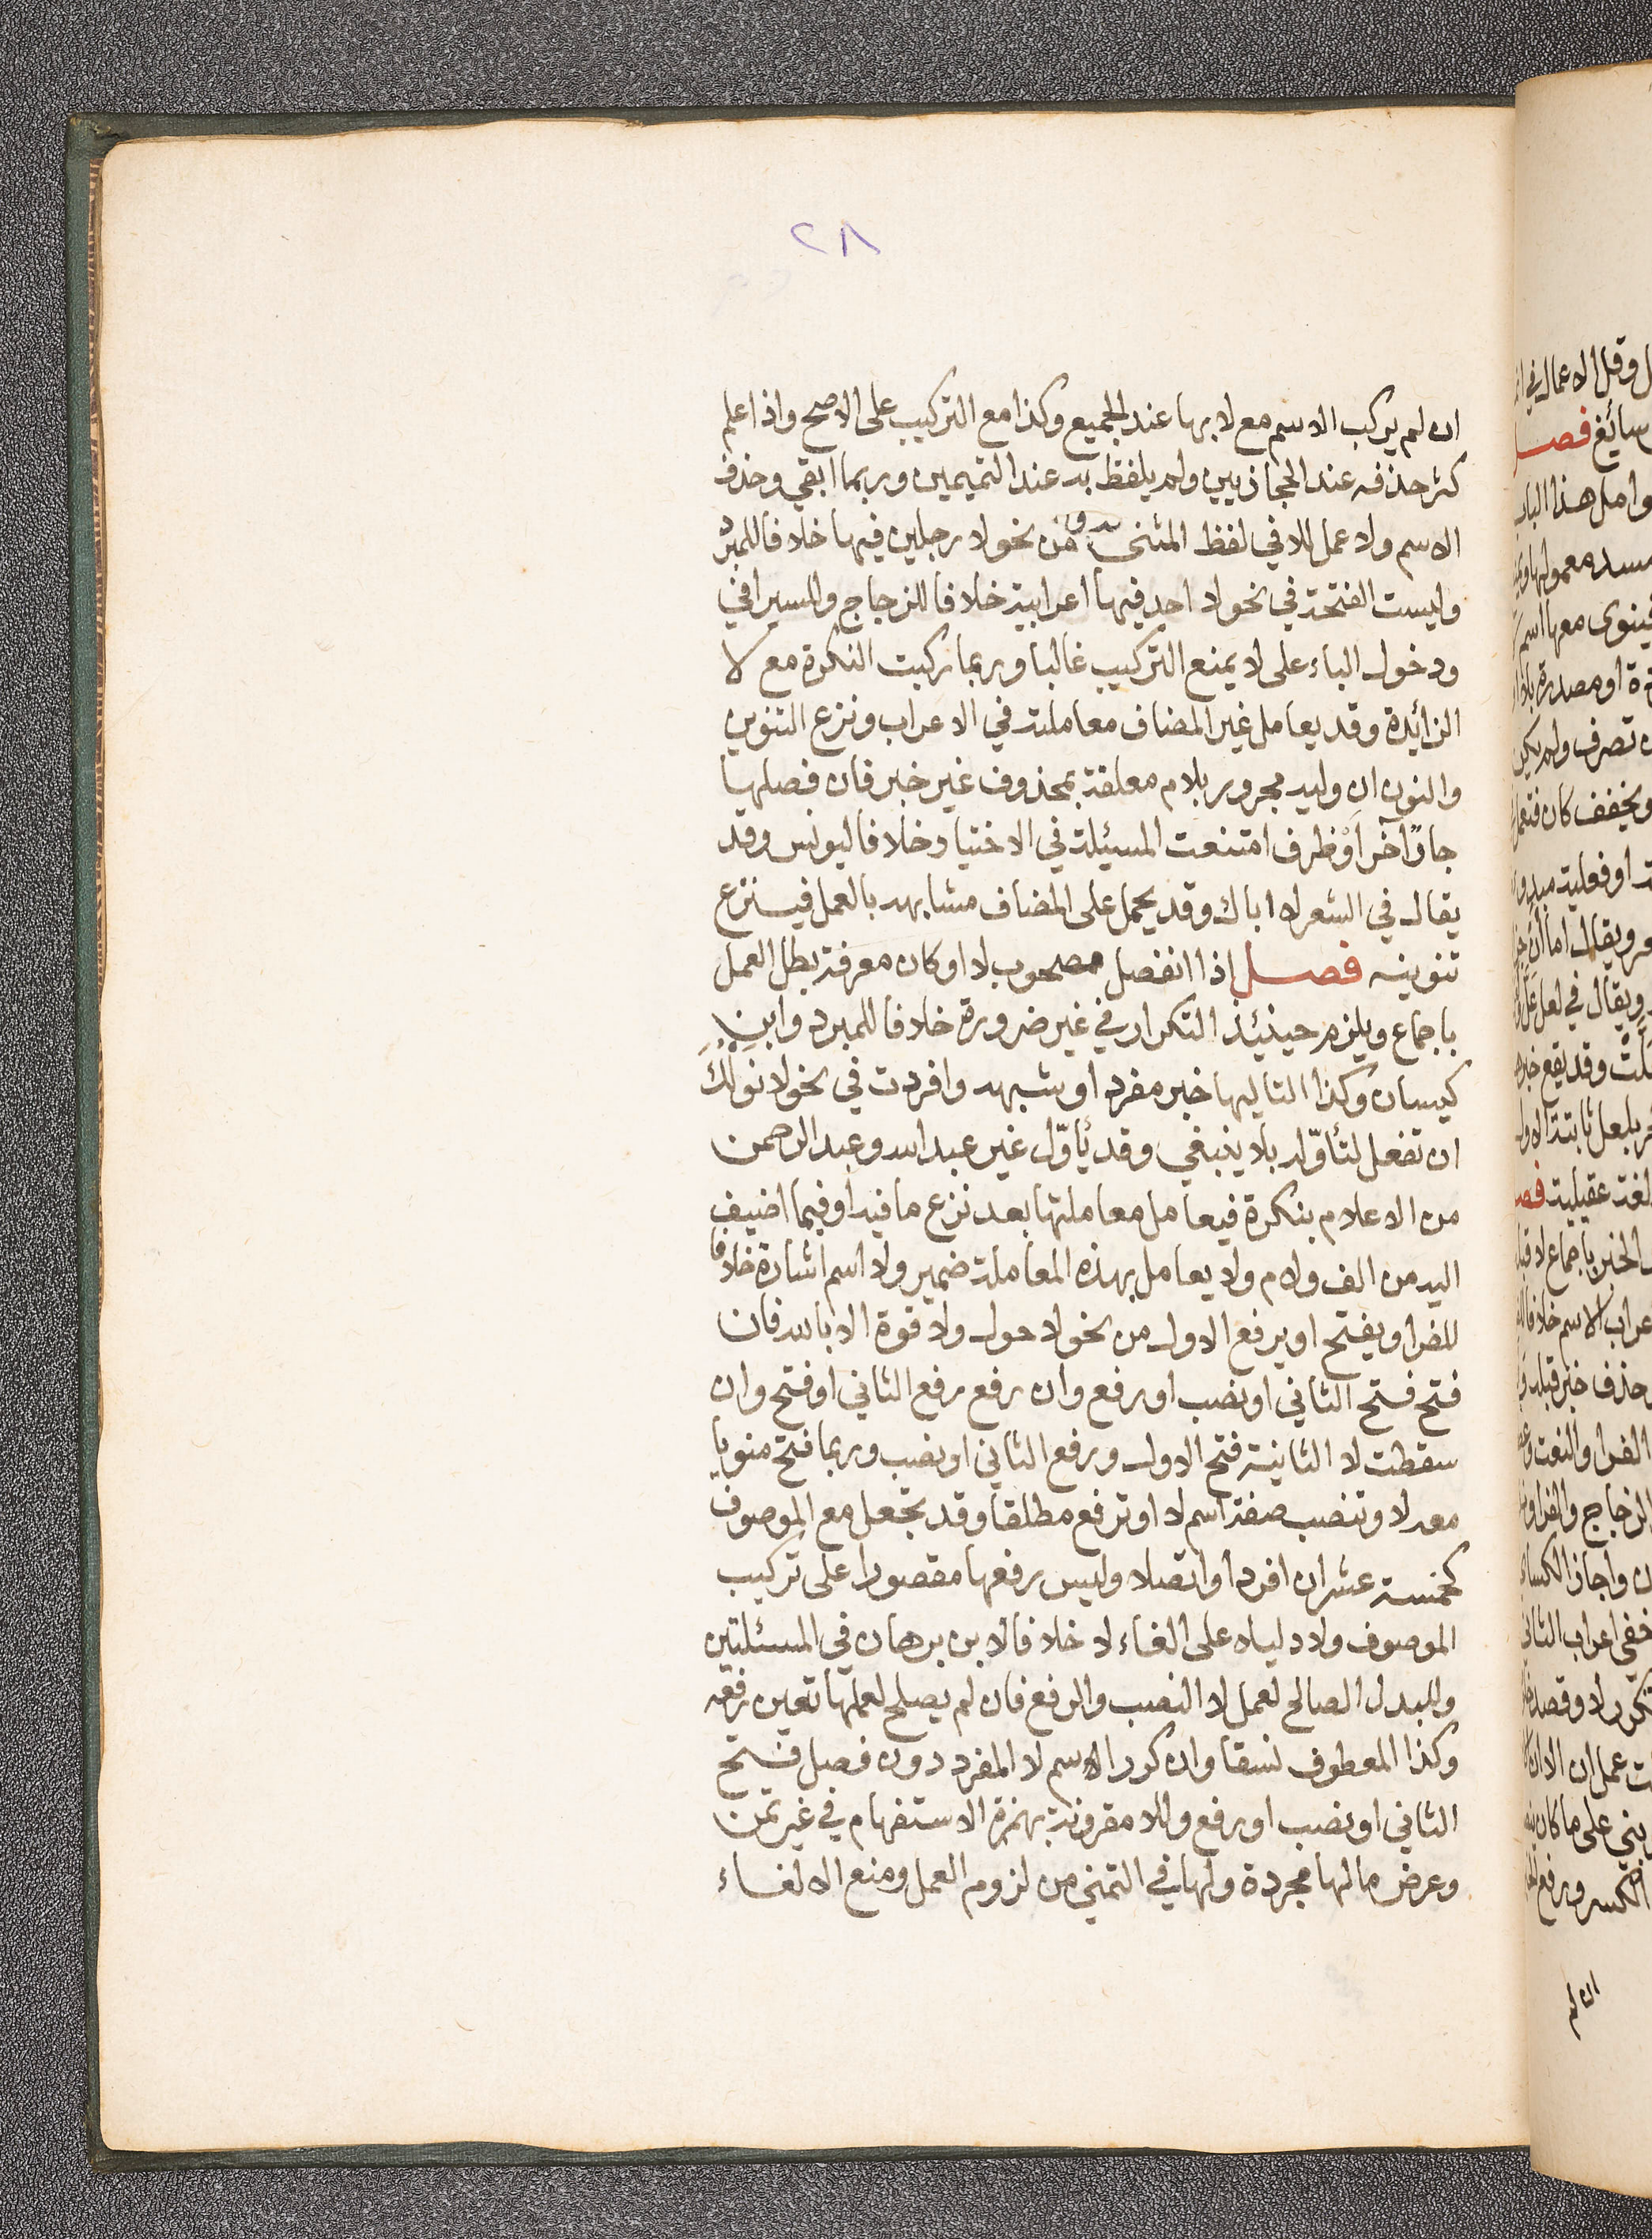 ٢٨
ان لم يركب الاسم مع لا بها عند الجميع وكذا مع التركيب على الاصح واذا علم
كثر حذفه عند الحجازيين ولم يلفظ به عند التميميين وربما ابقي وحذف
الاسم ولا عمل للا في لفظ المثنى من نحو لا رجلين فيها خلافا للمبرد
وليست الفتحة في نحو لا احد فيها اعرابية خلافا للزجاج والسيرافي
ودخول الباء على لا يمنع التركيب غالبا وربما ركبت النكرة مع لا
الزائدة وقد يعامل غير المضاف معاملته في الاعراب ونزع التنوين
والنون ان وليه مجرور بلام معلقة بمحذوف غير خبر فان فصلها
جارٌ آخر أوْ ظرف امتنعت المسئلة في الاختيار خلافا ليونس وقد
يقال في الشعر لا اباك وقد يحمل على المضاف مشابهه بالعمل فينزع
تنوينه فصل إذا انفصل مصحوب لا او كان معرفة بطل العمل
باجماع ويلزم حينئذ التكرار في غير ضرورة خلافا للمبرد وابنِ
كيسان وكذا التاليها خبر مفرد او شبهه وافردت في نحو لا نولكَ
ان تفعل لتأوّله بلا ينبغي وقد يُأوّل غير عبد الله وعبد الرحمن
من الاعلام بنكرة فيعامل معاملتها بعد نزع ما فيه أو فيما اضيف
اليه من الف ولام ولا يعامل بهذه المعاملة ضمير ولا اسم اشارة خلافا
للفرا ويفتح او يرفع الاول من نحو لا حول ولا قوة الا بالله فان
فتح فتح الثاني او نصب او رفع وان رفع رفع الثاني او فتح وان
سقطت لا الثانية فتح الاول ورفع الثاني او نصب وربما فتح منويا
معه لا وتنصب صفة اسم لا او ترفع مطلقا وقد تجعل مع الموصوف
كخمسة عشر ان افردا واتصلا وليس رفعها مقصورا على تركيب
الموصوف ولا دليلا على الغاء لا خلافا لابن برهان في المسئلتين
وللبدل الصالح لعمل لا النصب والرفع فان لم يصلح لعملها تعين رفعه
وكذا المعطوف نسقا وان كرر الاسم لا المفرد دون فصل فتح
الثاني او نصب او رفع وللا مقرونة بهمزة الاستفهام في غير تمن
وعرض ما لها مجردة ولها في التمني من لزوم العمل ومنع الالغاء